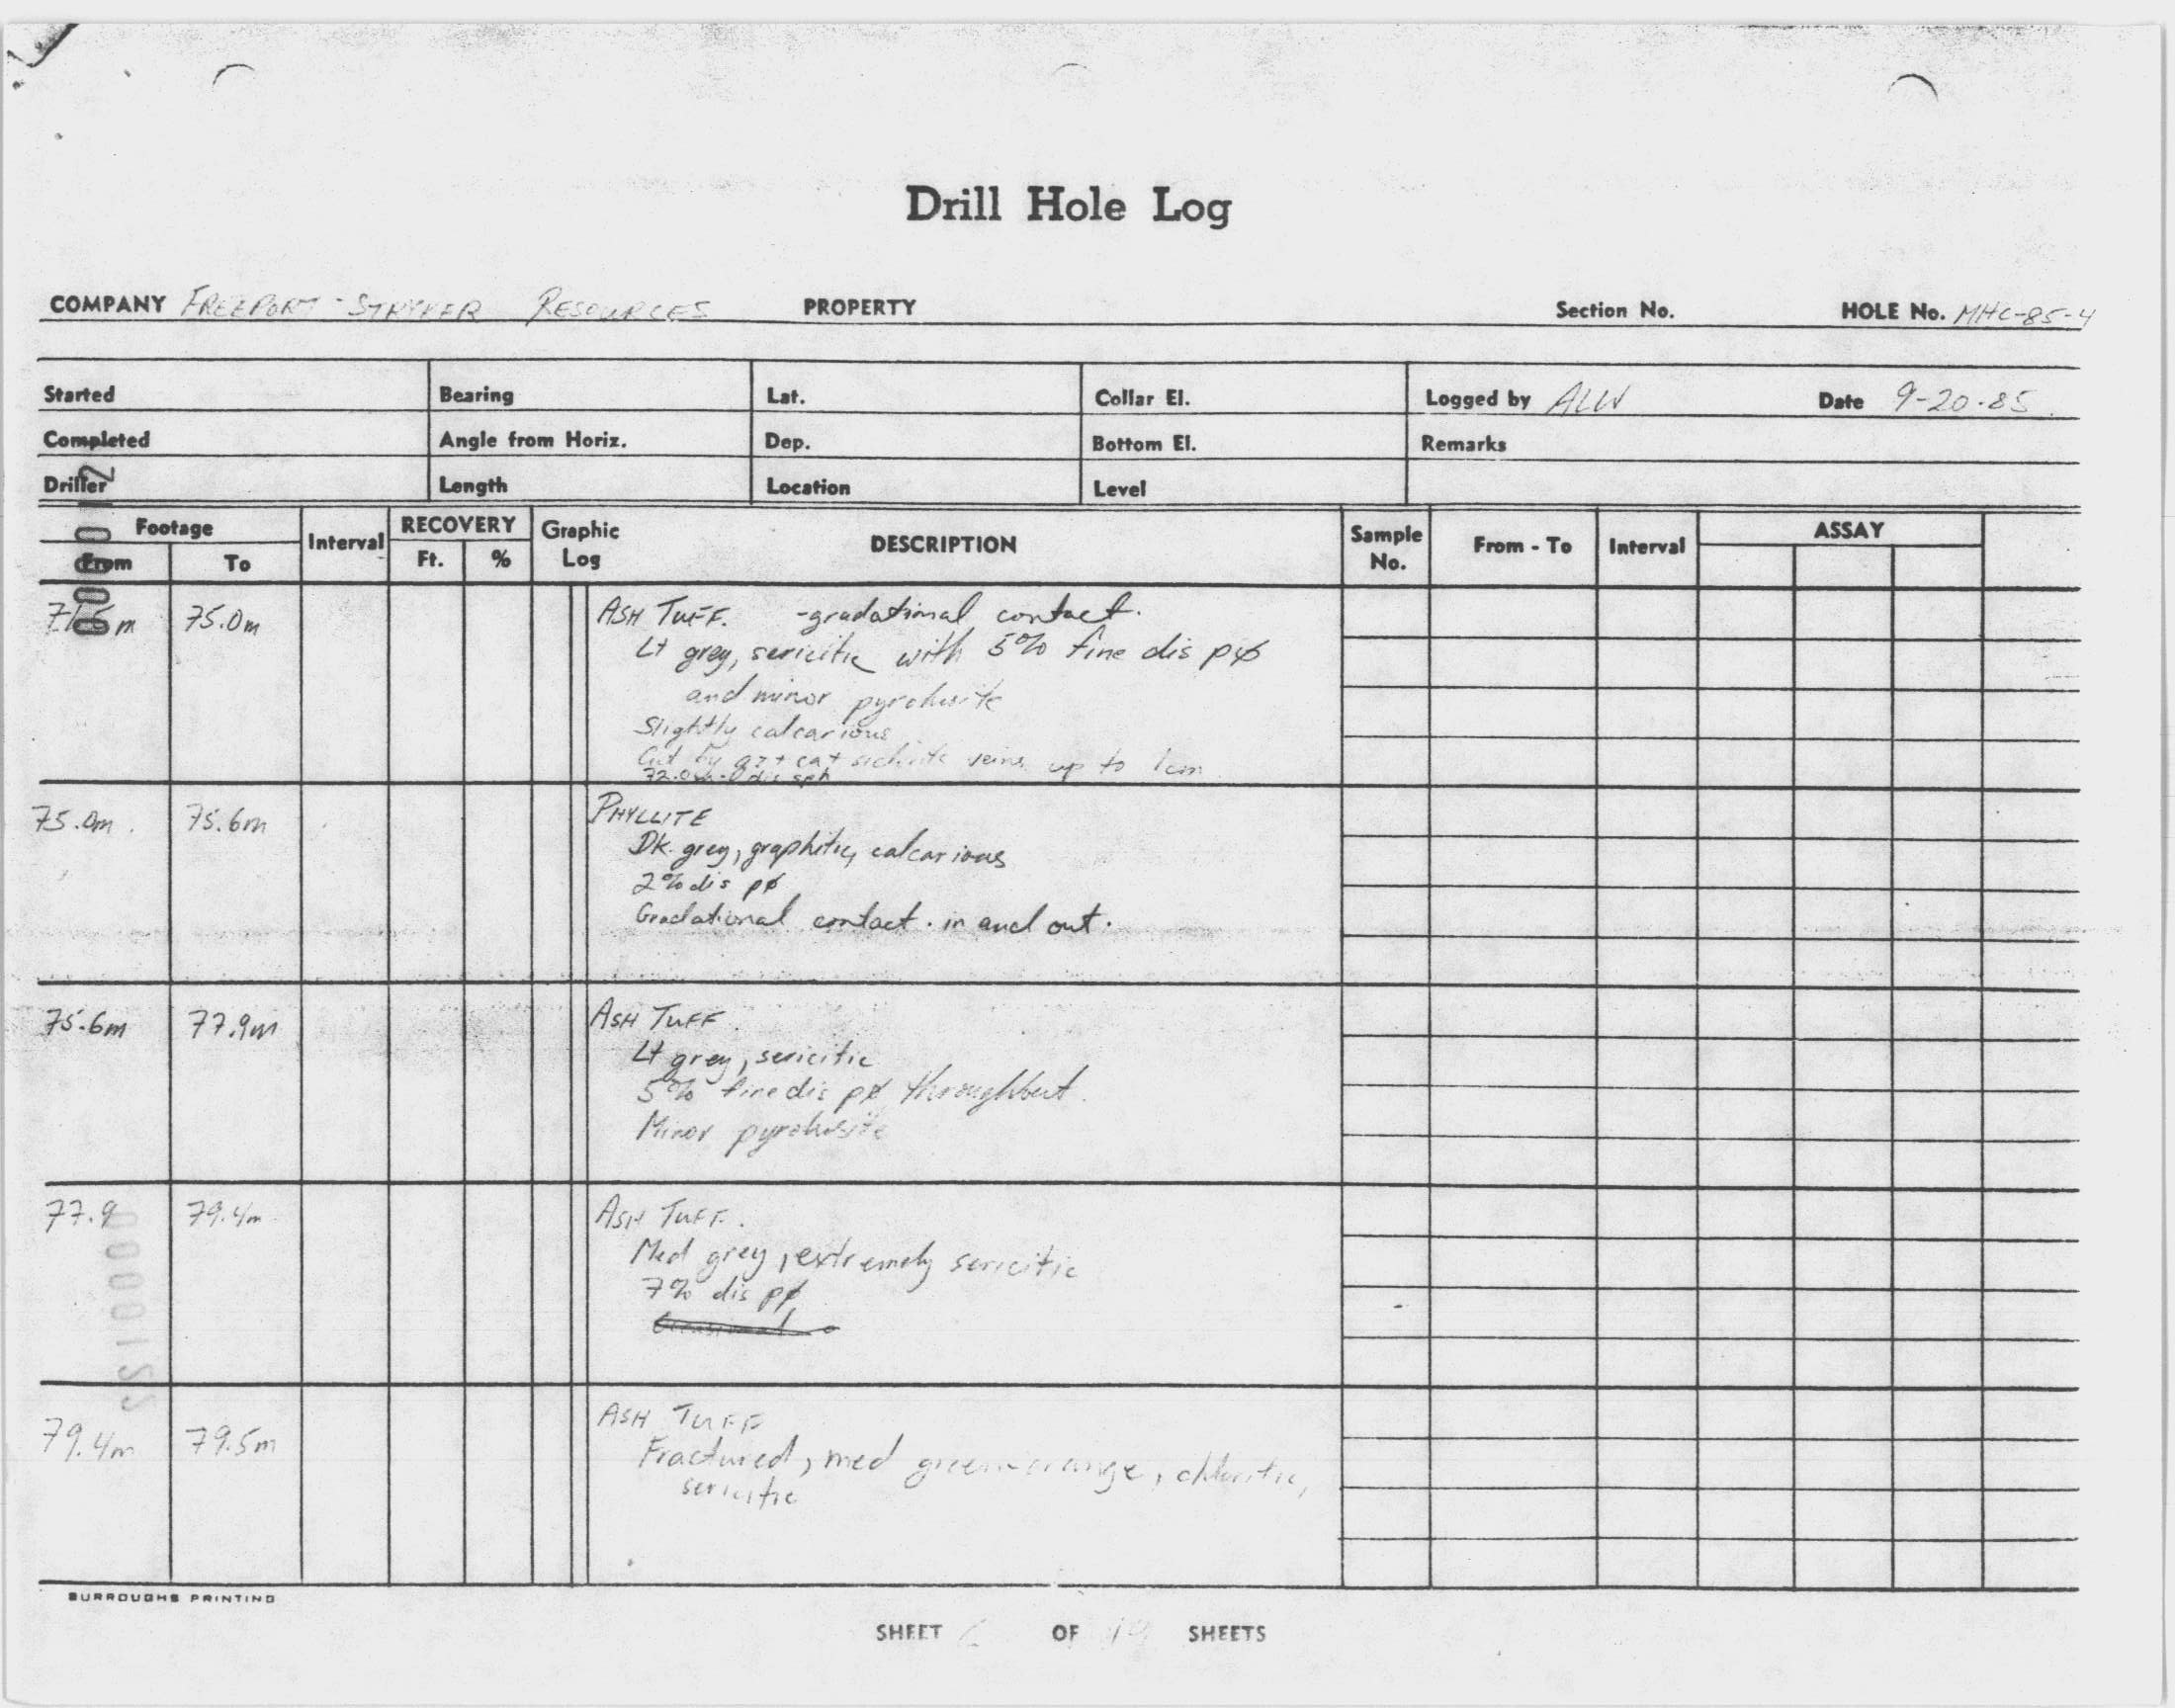 Drill Hole Log
COMPANY FREEPORT - STRYKER RESOURCES PROPERTY Section No. HOLE No. MHC-85-4
Started Bearing Lat. Collar El. Logged by ALW Date 9-20-85
Completed Angle from Horiz. Dep. Bottom El. Remarks
Driller Length Location Level
Footage Interval RECOVERY Graphic Log DESCRIPTION Sample No. From - To Interval ASSAY
From To Ft. %
75.0m ASH TUFF. -gradational contact.
Lt grey, sericitic with 5% fine dis
and minor pyrolusite
Slightly calcarious
Cut by qz + cat veins up to 1cm
dis sph
75.0m. 75.6m PHYLLITE
Dk grey, graphitic, calcarious
2% dis pø
Gradational contact. in and out.
75.6m 77.9m ASH TUFF
Lt grey, sericitic
5% fine dis pø throughout.
Minor pyrolusite
77.9 79.4m ASH TUFF.
Med grey, extremely sericitic
7% dis pø
79.4m 79.5m ASH TUFF
Fractured, med green-orange, chloritic,
sericitic
BURROUGHS PRINTING
SHEET OF 19 SHEETS